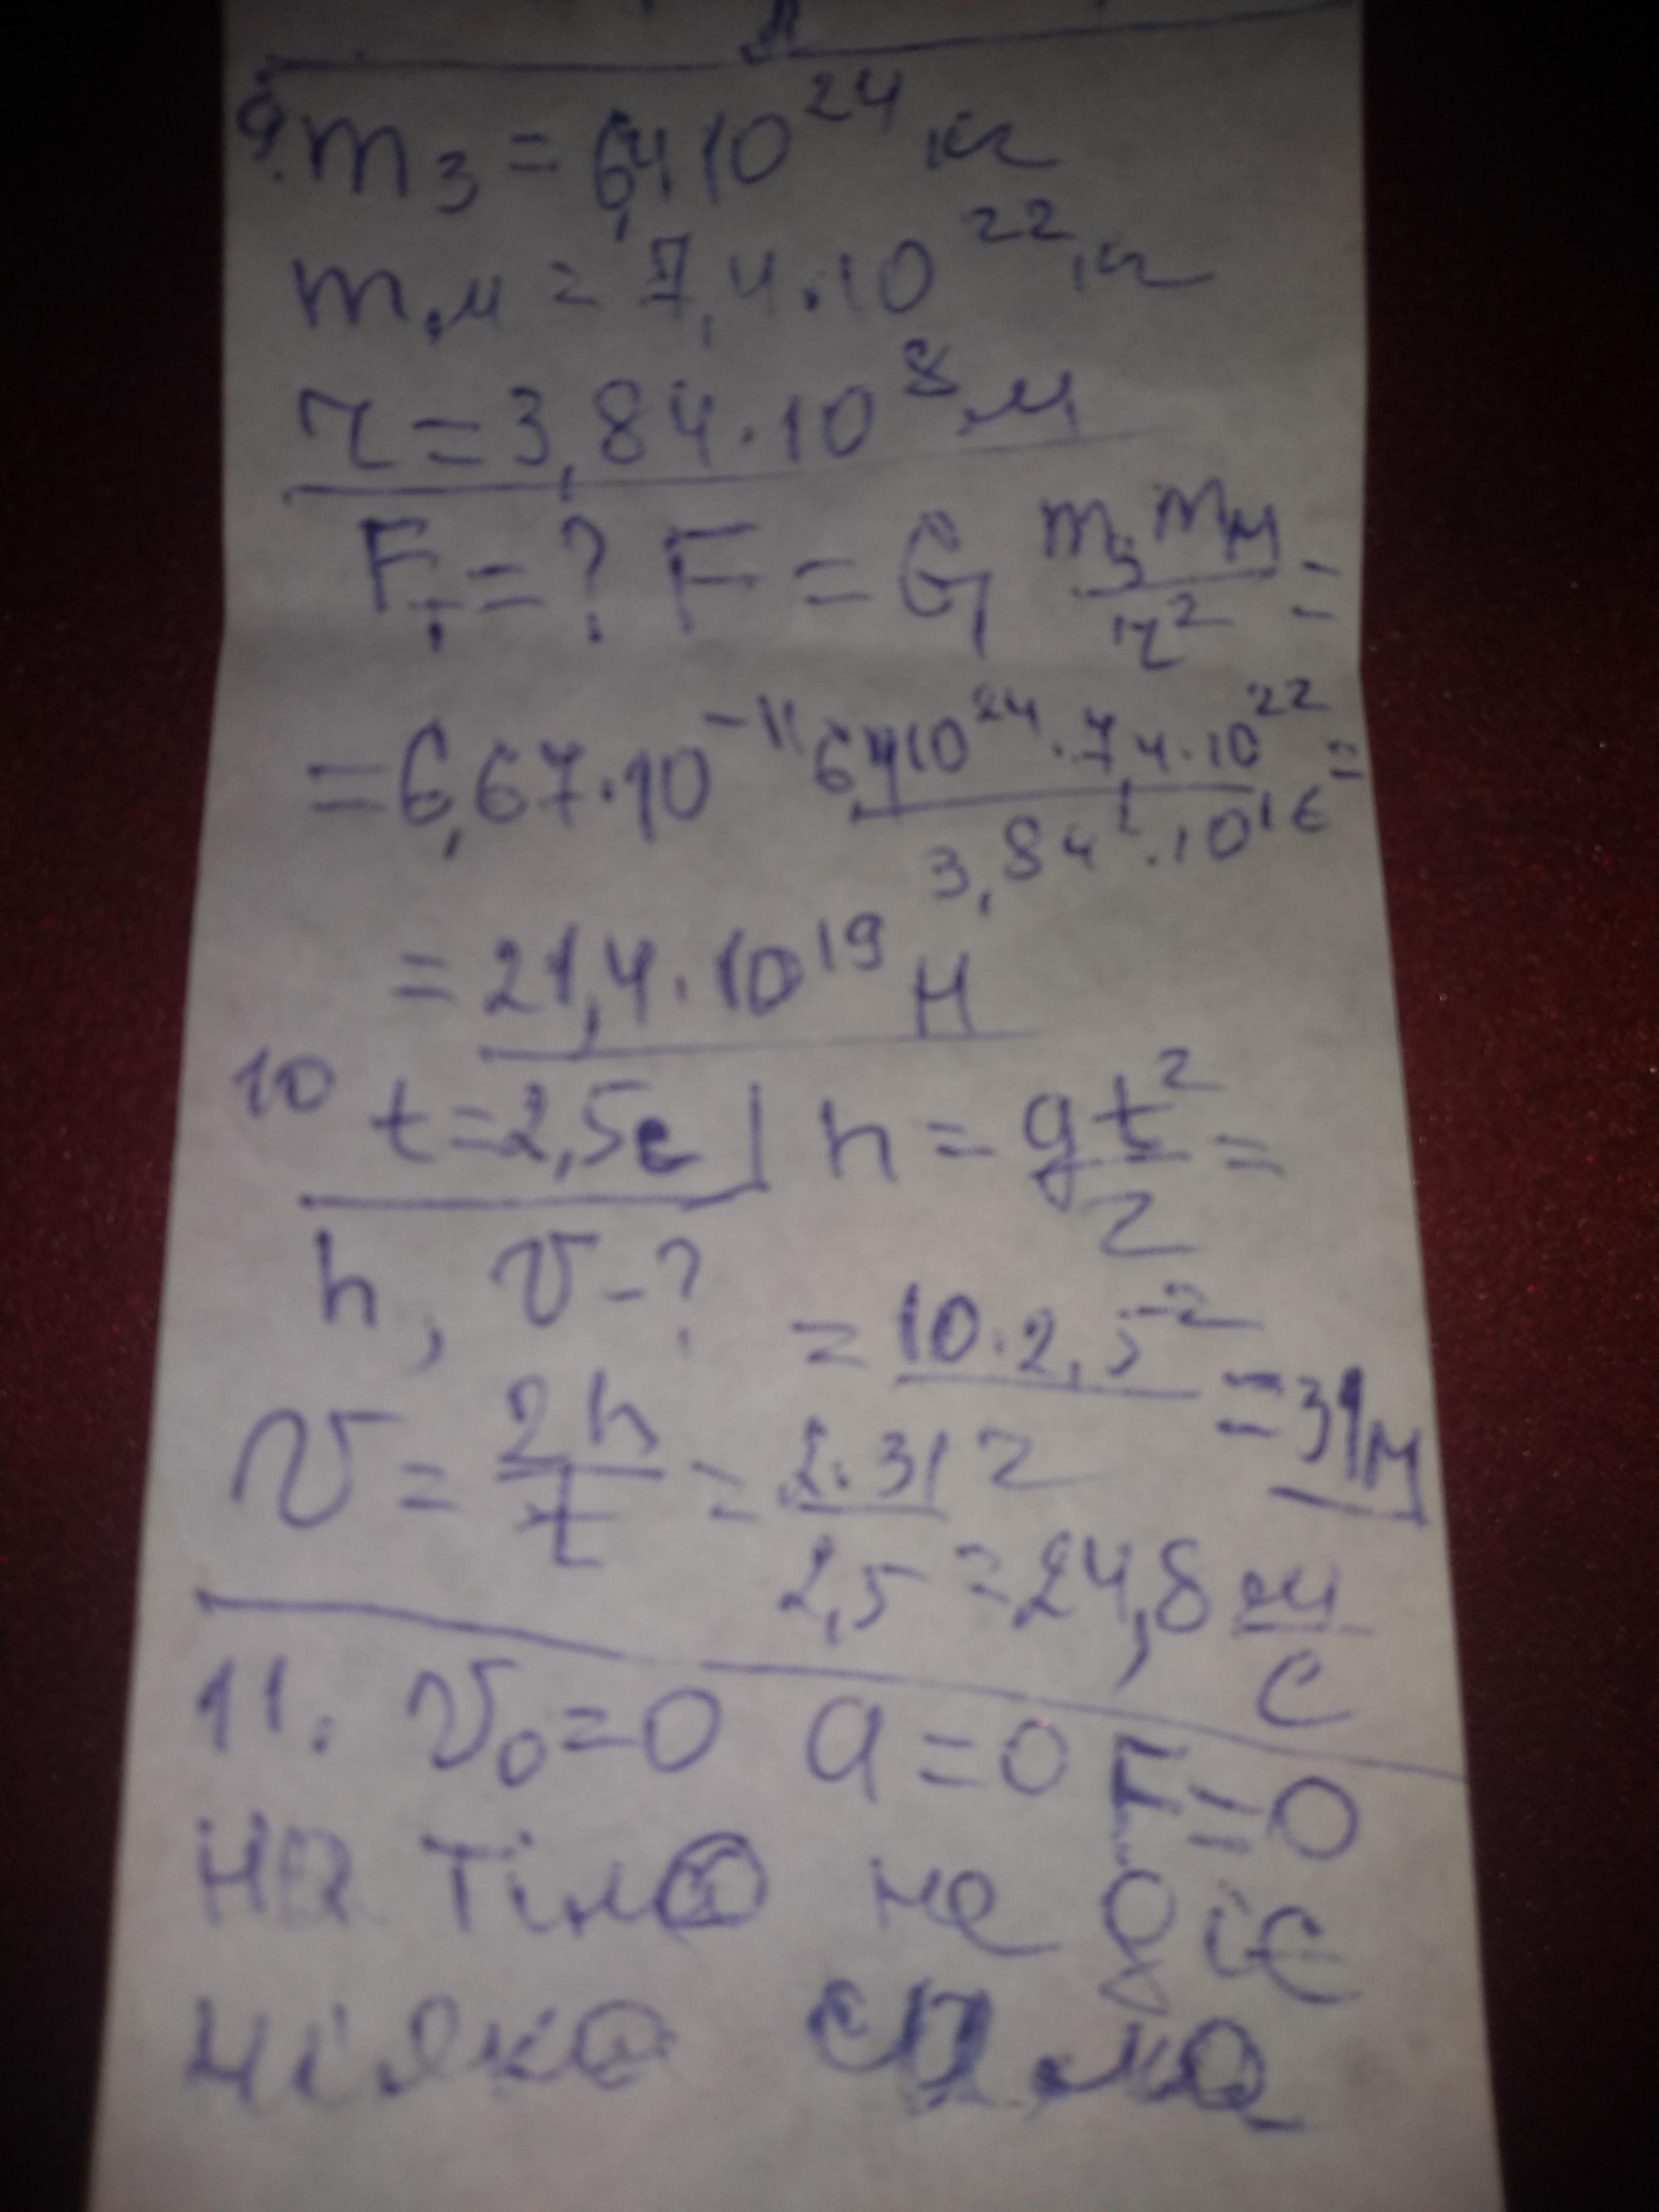 9. m₃ = 6,4 10²⁴ кг
mм = 7,4·10²² кг
r = 3,84·10⁸ м
F = ? F = G m₃ mм / r² =
= 6,67·10⁻¹¹ 6,4 10²⁴ · 7,4·10²² / 3,84² · 10¹⁶ =
= 21,4·10¹⁹ Н
10 t = 2,5с | h = gt² / 2 =
h, v - ? = 10·2,5² / 2 = 31м
v = 2h / t = 2·31 / 2,5 = 24,8 м/с
11. v₀ = 0 a = 0 F = 0
на тіло не діє
ніяка сила